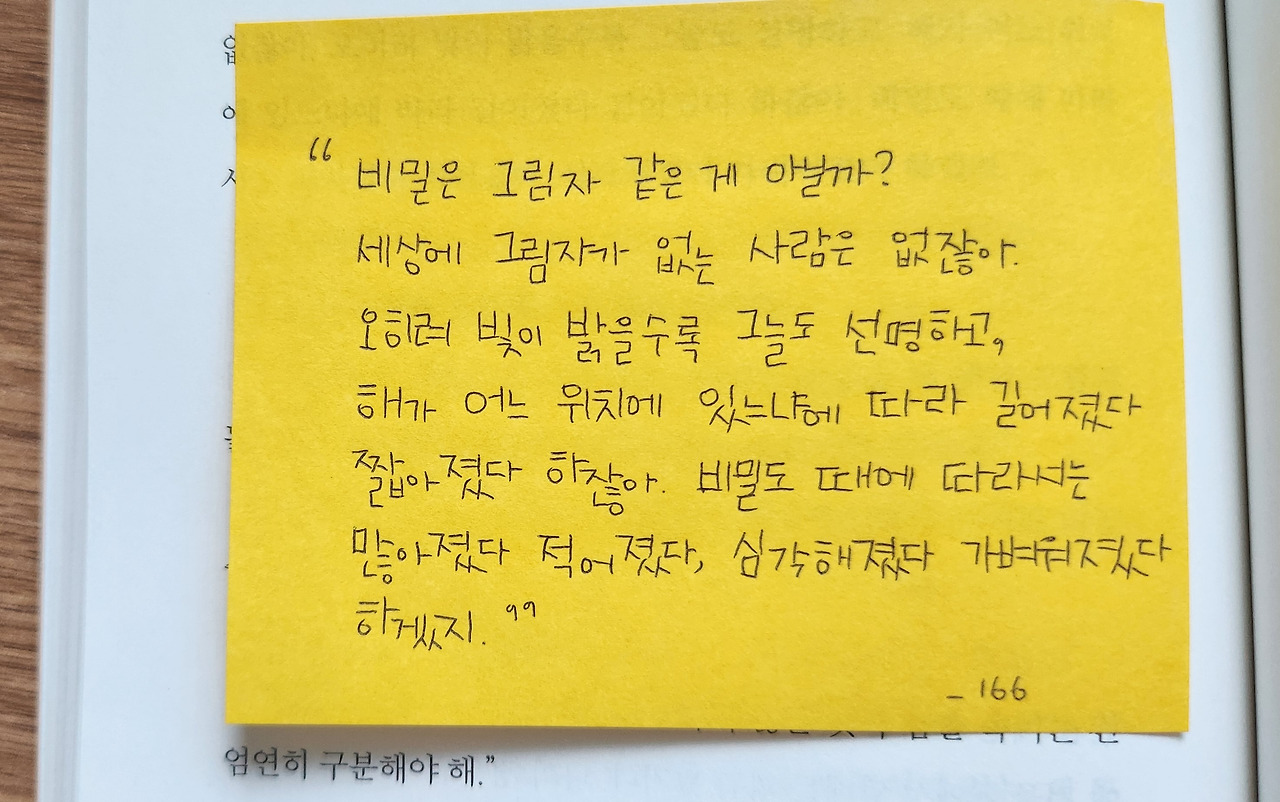 없
“ 비밀은 그림자 같은 게 아닐까?
세상에 그림자가 없는 사람은 없잖아.
오히려 빛이 밝을수록 그늘도 선명하고,
해가 어느 위치에 있느냐에 따라 길어졌다
짧아졌다 하잖아. 비밀도 때에 따라서는
많아졌다 적어졌다, 심각해졌다 가벼워졌다
하겠지. ”
- 166
엄연히 구분해야 해.”